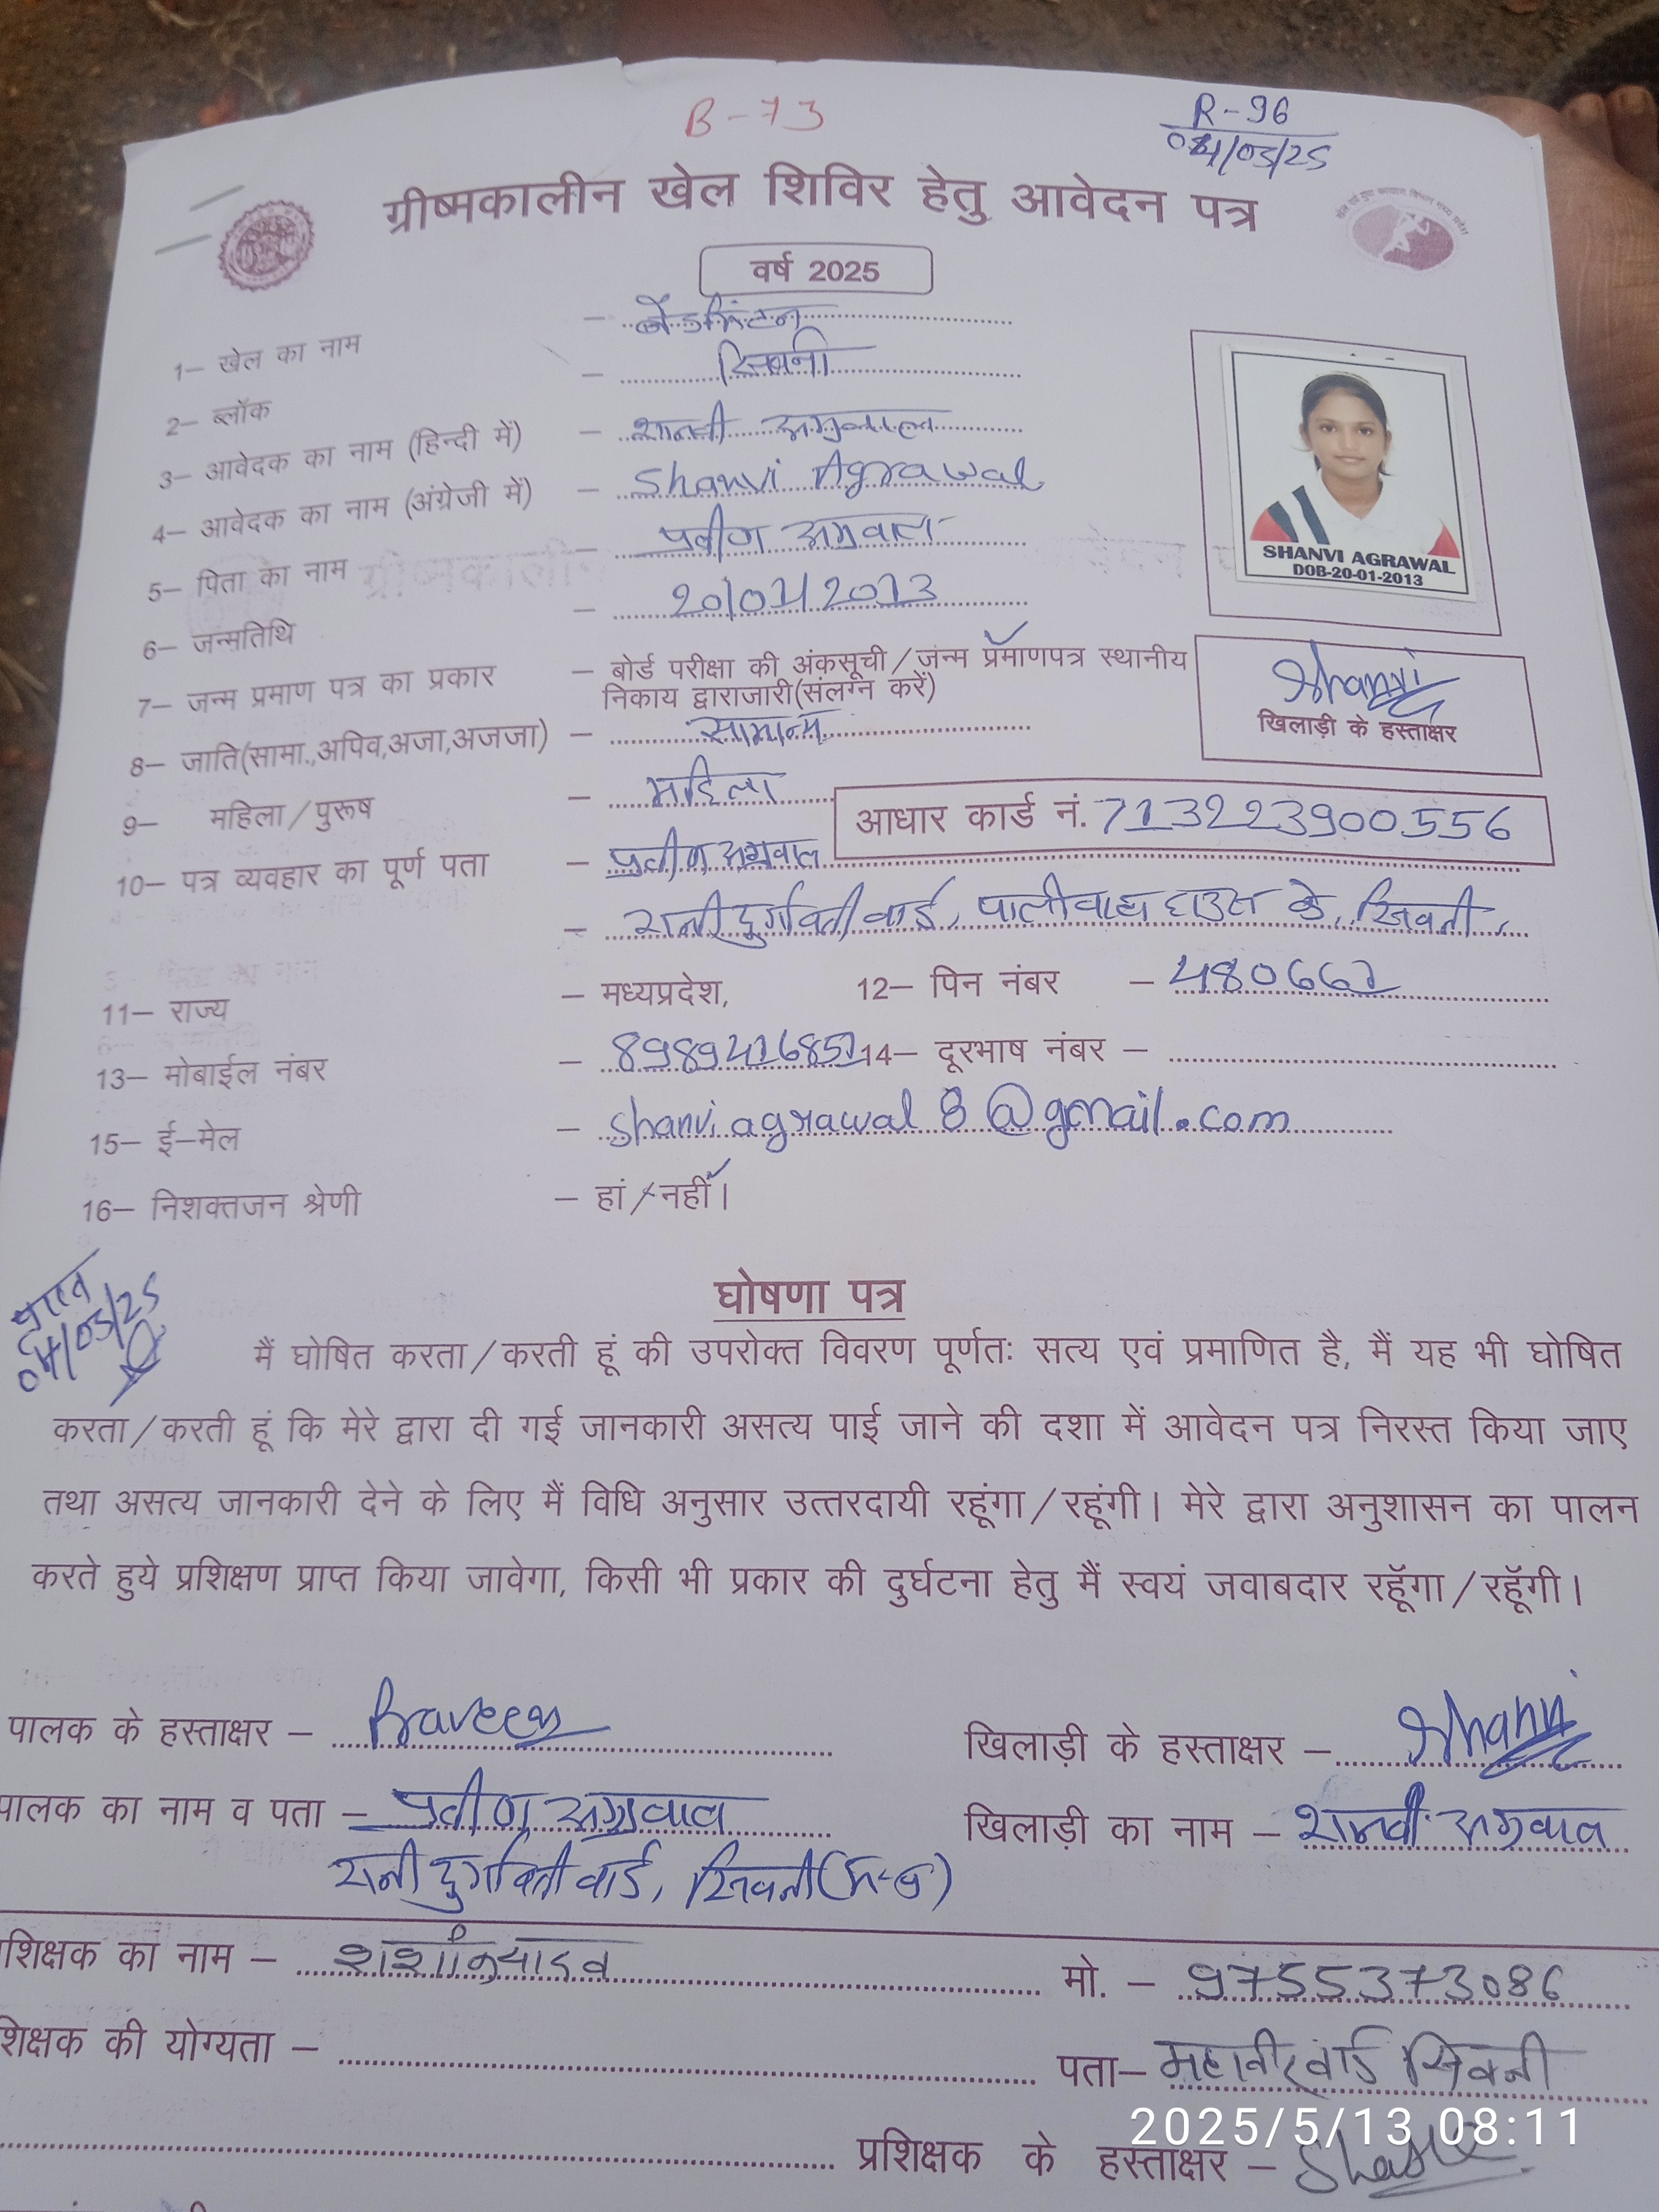 B-73
R-96
04/05/25
ग्रीष्मकालीन खेल शिविर हेतु आवेदन पत्र
वर्ष 2025
1– खेल का नाम – बैडमिंटन
2– ब्लॉक – सिवनी
3– आवेदक का नाम (हिन्दी में) – शान्वी अग्रवाल
4– आवेदक का नाम (अंग्रेजी में) – Shanvi Agrawal
5– पिता का नाम – प्रवीण अग्रवाल
6– जन्मतिथि – 20/01/2013
SHANVI AGRAWAL
DOB-20-01-2013
7– जन्म प्रमाण पत्र का प्रकार – बोर्ड परीक्षा की अंकसूची/जन्म प्रमाणपत्र स्थानीय
निकाय द्वाराजारी(संलग्न करें)
Shanvi
खिलाड़ी के हस्ताक्षर
8– जाति(सामा.,अपिव,अजा,अजजा) – सामान्य
9– महिला/पुरूष – महिला
आधार कार्ड नं. 713223900556
10– पत्र व्यवहार का पूर्ण पता – प्रवीण अग्रवाल
– रानी दुर्गावती वार्ड, के, सिवनी,
11– राज्य – मध्यप्रदेश, 12– पिन नंबर – 480661
13– मोबाईल नंबर – 8989416851 14– दूरभाष नंबर –
15– ई–मेल – shanviagrawal8@gmail.com
16– निशक्तजन श्रेणी – हां/नहीं।
प्राप्त
04/05/25
घोषणा पत्र
मैं घोषित करता/करती हूं की उपरोक्त विवरण पूर्णतः सत्य एवं प्रमाणित है, मैं यह भी घोषित
करता/करती हूं कि मेरे द्वारा दी गई जानकारी असत्य पाई जाने की दशा में आवेदन पत्र निरस्त किया जाए
तथा असत्य जानकारी देने के लिए मैं विधि अनुसार उत्तरदायी रहूंगा/रहूंगी। मेरे द्वारा अनुशासन का पालन
करते हुये प्रशिक्षण प्राप्त किया जावेगा, किसी भी प्रकार की दुर्घटना हेतु मैं स्वयं जवाबदार रहूँगा/रहूँगी।
पालक के हस्ताक्षर – Praveen खिलाड़ी के हस्ताक्षर – Shanvi
पालक का नाम व पता – प्रवीण अग्रवाल खिलाड़ी का नाम – शान्वी अग्रवाल
रानी दुर्गावती वार्ड, सिवनी (म-प्र)
शिक्षक का नाम – शशांक यादव मो. – 9755373086
शिक्षक की योग्यता – पता– महावीर वार्ड सिवनी
2025/5/13 08:11
प्रशिक्षक के हस्ताक्षर –